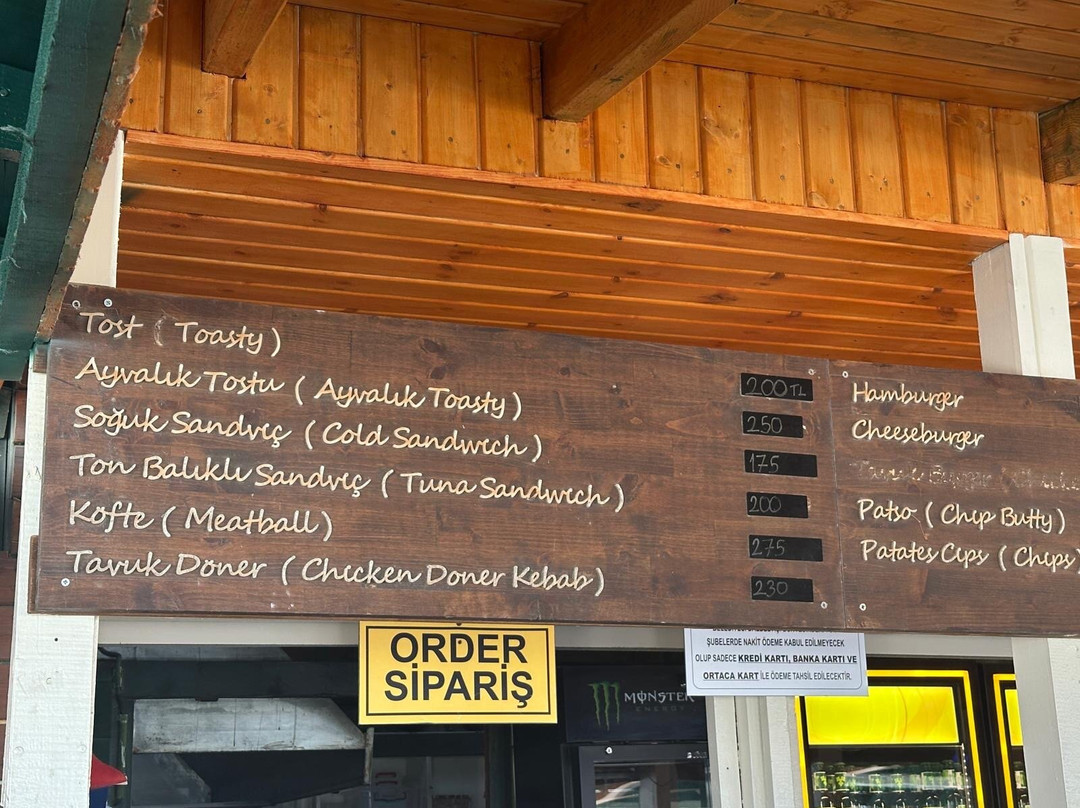 Tost ( Toasty )
200 TL
Ayvalık Tostu ( Ayvalık Toasty )
250
Soğuk Sandviç ( Cold Sandwich )
175
Ton Balıklı Sandviç ( Tuna Sandwich )
200
Köfte ( Meatball )
275
Tavuk Döner ( Chicken Doner Kebab )
230
Hamburger
Cheeseburger
Patso ( Chip Butty )
Patates Cips ( Chips
ORDER
SİPARİŞ
ŞUBELERDE NAKİT ÖDEME KABUL EDİLMEYECEK
OLUP SADECE KREDİ KARTI, BANKA KARTI VE
ORTACA KART İLE ÖDEME TAHSİL EDİLECEKTİR.
MONSTER
ENERGY